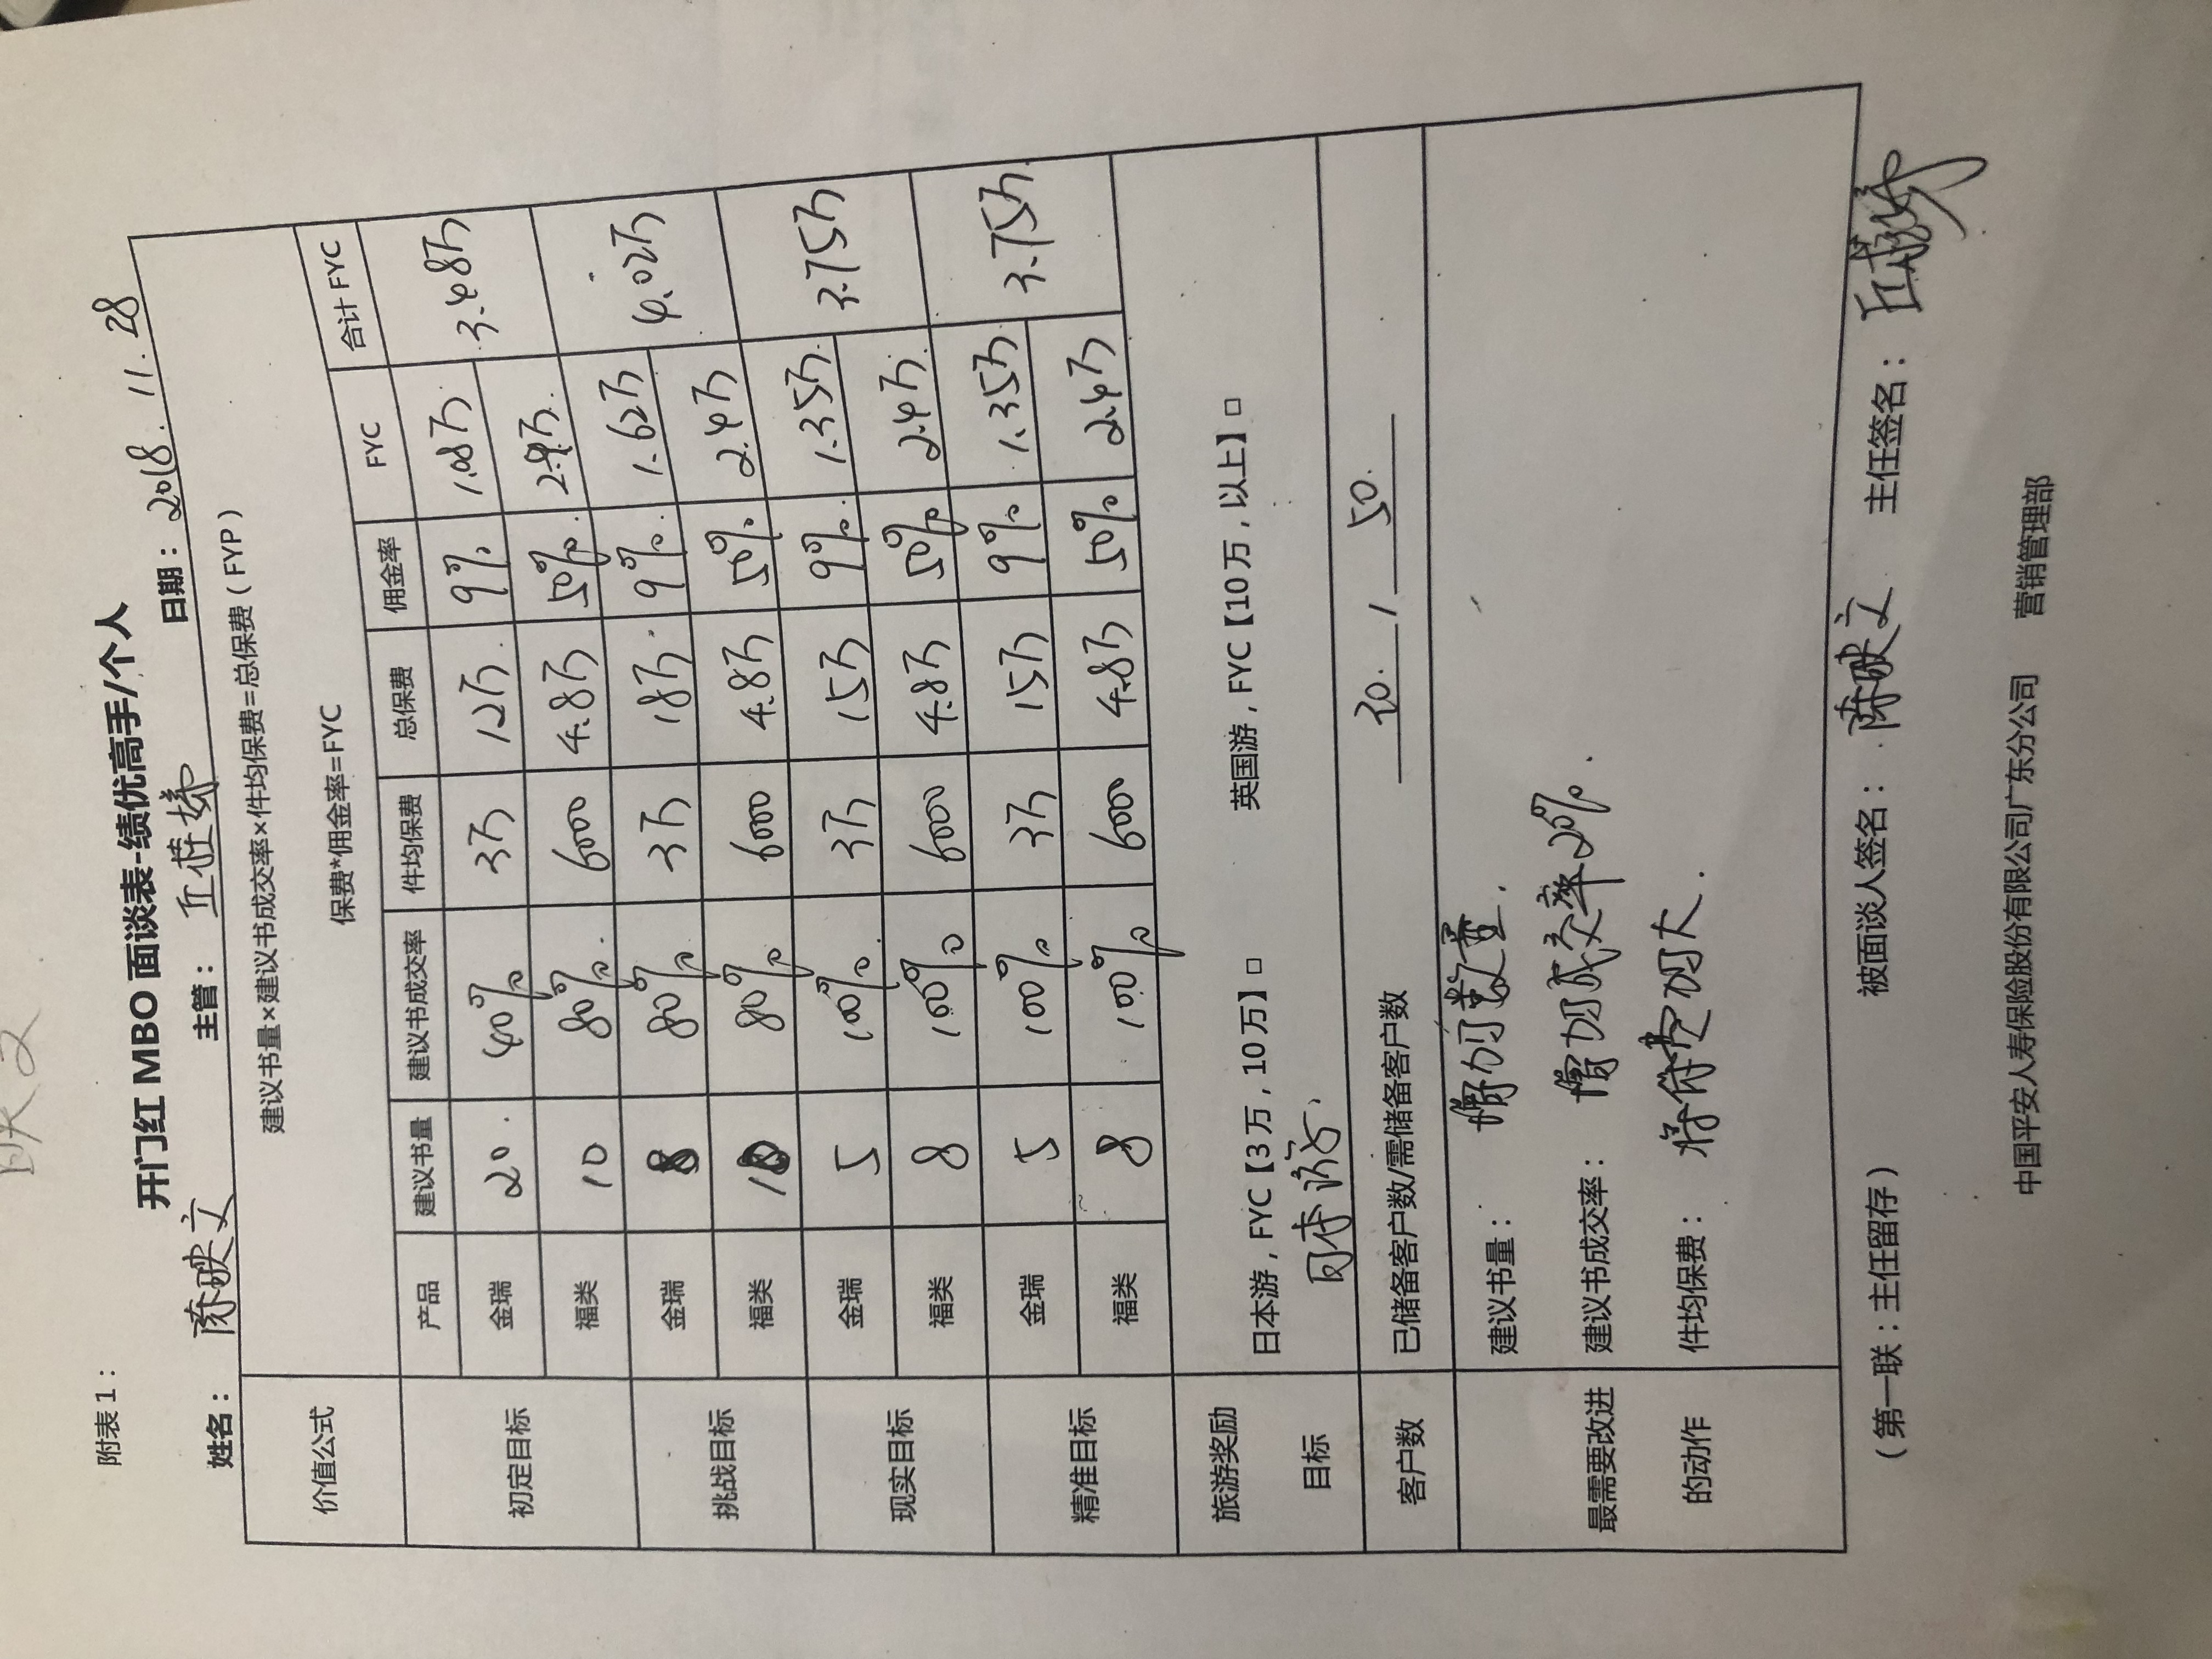 附表1：
开门红 MBO 面谈表-绩优高手/个人
姓名： 陈映文 主管： 丘桂娣 日期：2018.11.28
价值公式 建议书量×建议书成交率×件均保费=总保费（FYP）
保费*佣金率=FYC
产品 建议书量 建议书成交率 件均保费 总保费 佣金率 FYC 合计 FYC
初定目标 金瑞 20. 40% 3万 12万. 9% 1.08万 3.48万
福类 10 80%. 6000 4.8万 50% 2.4万.
挑战目标 金瑞 8 80% 3万 18万. 9%. 1.62万 4.02万
福类 10 80% 6000 4.8万 50% 2.4万
现实目标 金瑞 5 100%. 3万 15万 9%. 1.35万 3.75万
福类 8 100% 6000 4.8万 50% 2.4万.
精准目标 金瑞 5 100% 3万 15万 9% 1.35万 3.75万.
福类 8 100% 6000 4.8万 50% 2.4万
旅游奖励
目标
日本游，FYC【3万，10万】□ 英国游，FYC【10万，以上】□
日本游.
客户数 已储备客户数/需储备客户数 30. / 50.
最需要改进
的动作
建议书量： 增加数量.
建议书成交率： 增加成交率20%.
件均保费： 将保费加大.
（第一联：主任留存） 被面谈人签名： 陈映文 主任签名：
中国平安人寿保险股份有限公司广东分公司 营销管理部